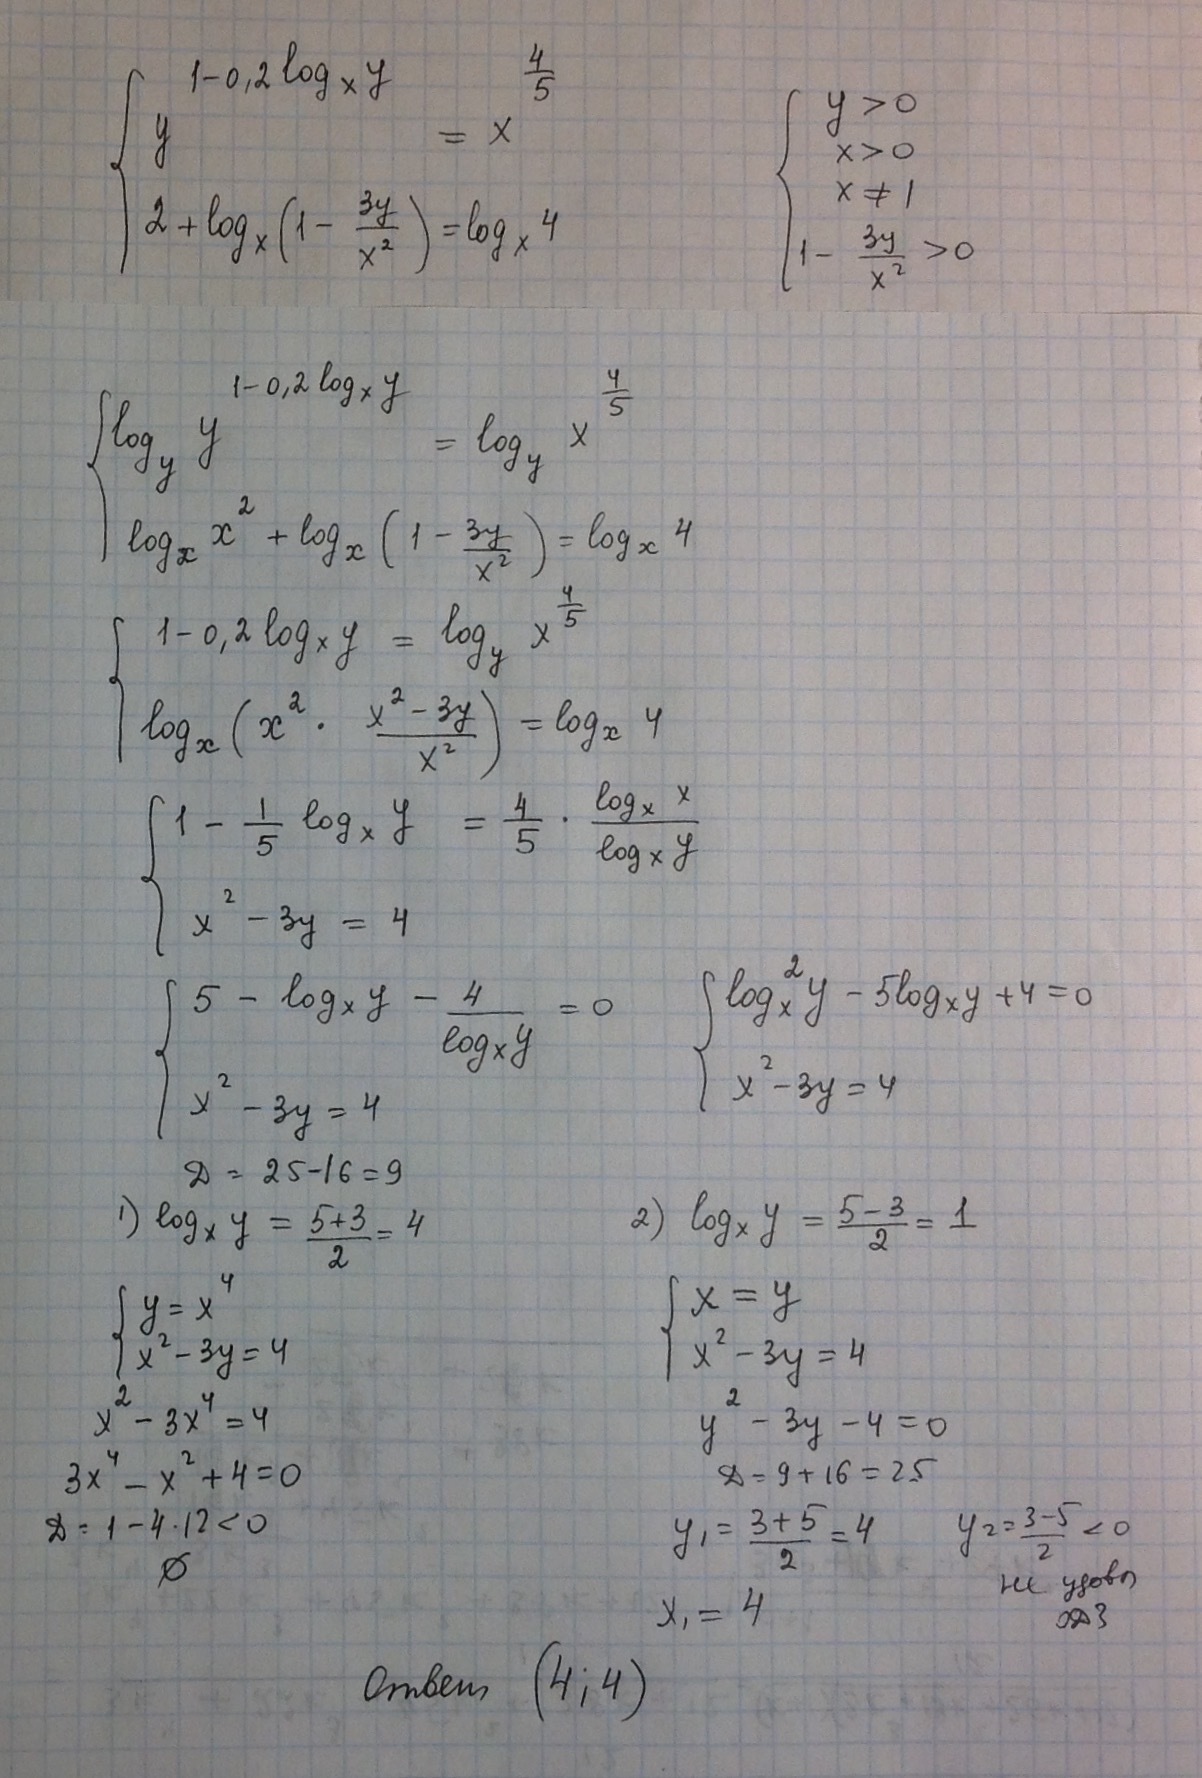 { y^(1-0,2 log_x y) = x^(4/5)
2 + log_x (1 - 3y/x²) = log_x 4
{ y > 0
x > 0
x ≠ 1
1 - 3y/x² > 0
{ log_y y^(1-0,2 log_x y) = log_y x^(4/5)
log_x x² + log_x (1 - 3y/x²) = log_x 4
{ 1 - 0,2 log_x y = log_y x^(4/5)
log_x (x² · (x² - 3y)/x²) = log_x 4
{ 1 - 1/5 log_x y = 4/5 · (log_x x)/(log_x y)
x² - 3y = 4
{ 5 - log_x y - 4/(log_x y) = 0
x² - 3y = 4
{ log_x² y - 5 log_x y + 4 = 0
x² - 3y = 4
D = 25 - 16 = 9
1) log_x y = (5+3)/2 = 4
{ y = x⁴
x² - 3y = 4
x² - 3x⁴ = 4
3x⁴ - x² + 4 = 0
D = 1 - 4·12 < 0
∅
2) log_x y = (5-3)/2 = 1
{ x = y
x² - 3y = 4
y² - 3y - 4 = 0
D = 9 + 16 = 25
y₁ = (3+5)/2 = 4 y₂ = (3-5)/2 < 0
не удовл
ОДЗ
x₁ = 4
Ответ (4; 4)